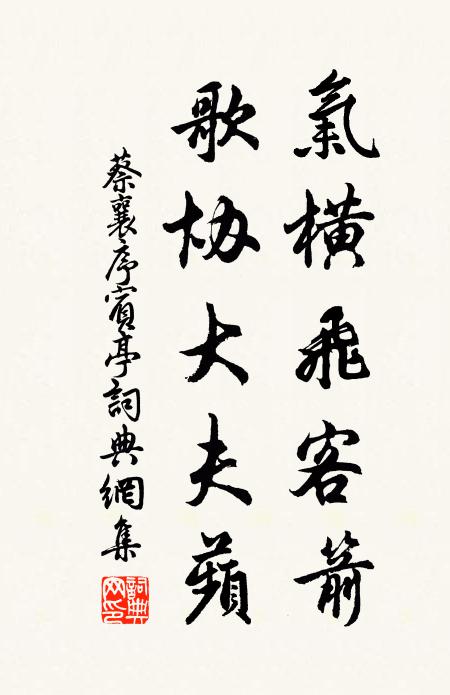 氣橫飛客箭
歌協大夫蘋
蔡襄序賓亭詞典網集
詞典網印